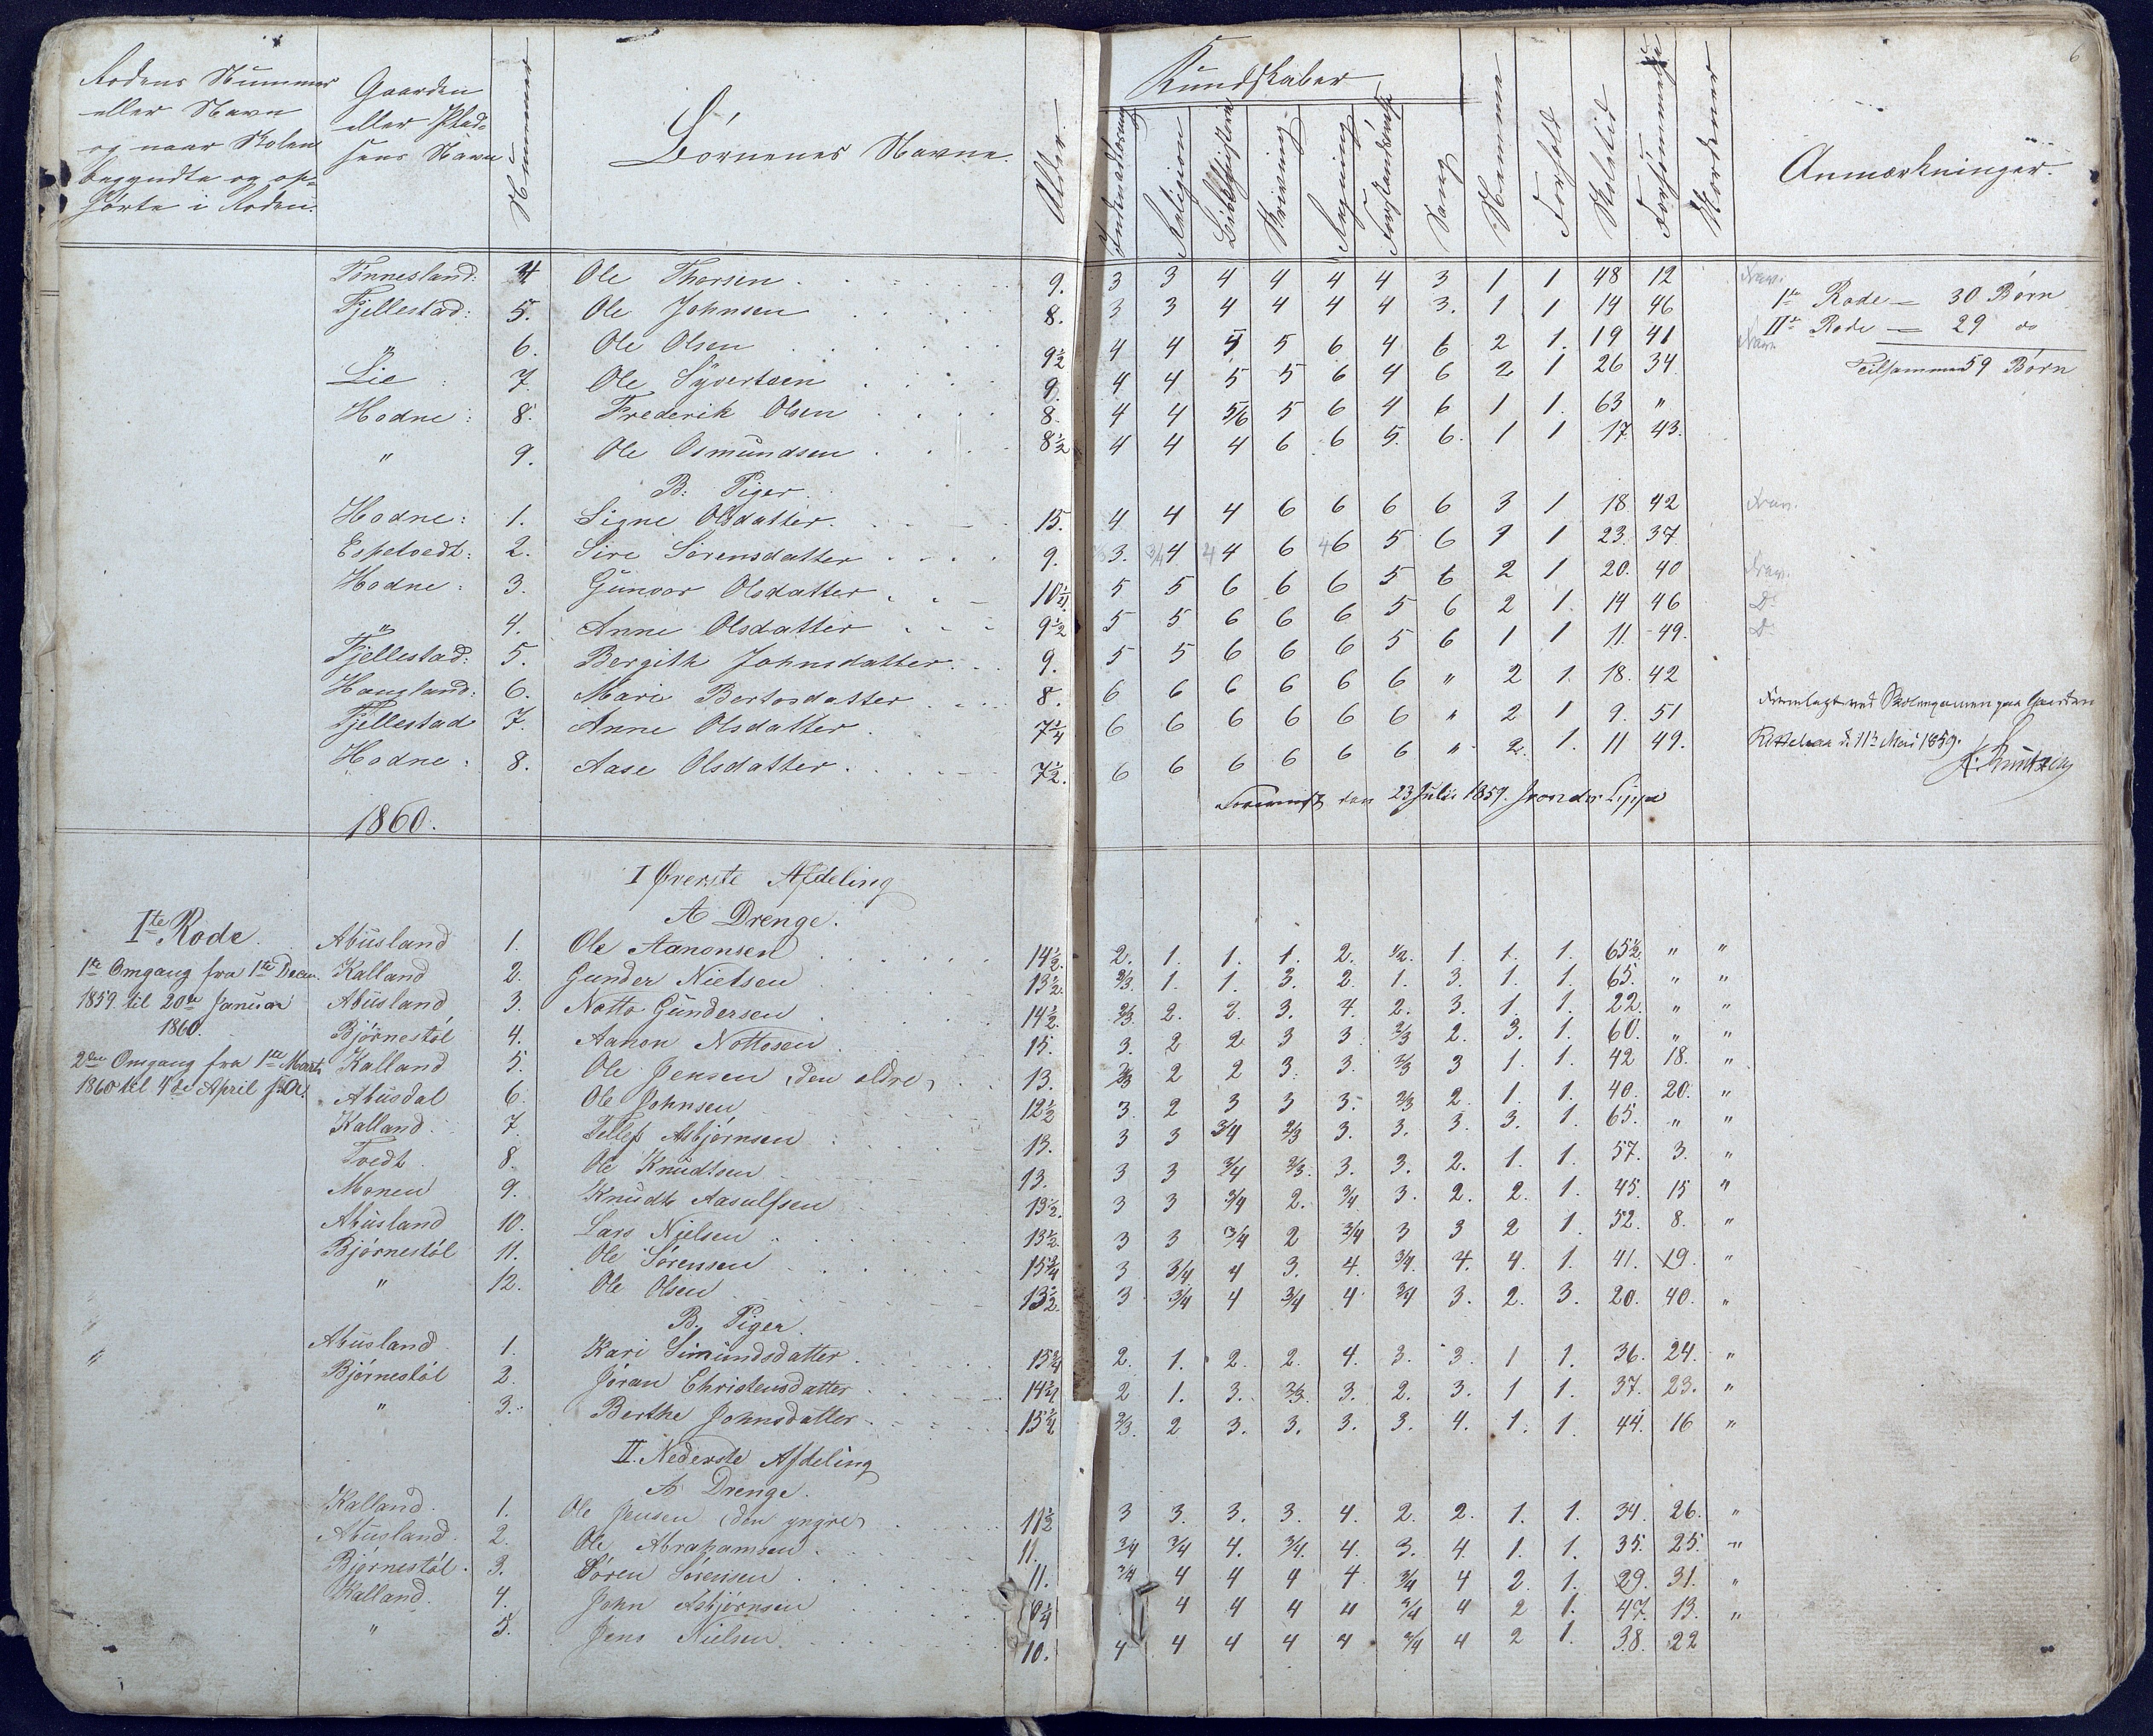 6
Rodens Nummer
eller Navn
og naar Skolen
begyndte og op-
hørte i Roden.
Gaarden
eller Plad-
sens Navn
Nummer
Børnenes Navne.
Alder
Kundskaber
Indenadlæsning
Religion
Bibelhistorie
Skrivning
Regning
Forstandsøvelse
Sang
Nemme
Forhold
Skoletid
Forsømmelse
Anmærkninger.
Tønnesland: 4 Ole Thorsen 9. 3 3 4 4 4 4 3 1 1 48 12 Frav.
Fjellestad: 5. Ole Johnsen 8. 3 3 4 4 4 4 3. 1 1 14 46
" 6. Ole Olsen 9½ 4 4 5 5 6 4 6 2 1. 19 41 Frav.
Lie : 7. Ole Syvertsen 9. 4 4 5 5 6 4 6 2 1 26 34
Hodne : 8. Frederik Olsen 8. 4 4 5/6 5 6 4 6 1 1. 63 "
" 9. Ole Osmundsen 8½ 4 4 4 6 6 5. 6. 1 1 17 43.
1te Rode = 30 Børn
IIde Rode = 29 do
Tilsammen 59 Børn
B. Piger.
Hodne: 1. Signe Olsdatter. 15. 4 4 4 6 6 6 6 3 1 18 42 Frav.
Espetvedt: 2. Sire Sørensdatter 9. 3. 3/4 4 4 4 6 4 6 5 6 1 1 23. 37
Hodne : 3. Gunvor Olsdatter 10½. 5 5 6 6 6 5 6 2 1 20. 40 Frav.
" 4. Anne Olsdatter 9½ 5 5 6 6 6 5 6 2 1. 14 46 Do
Fjellestad: 5. Bergith Johnsdatter 9. 5 5 6 6 6 5 6 1 1 11. 49. Do
Haugland: 6. Mari Bertosdatter 8. 6 6 6 6 6 6 " 2 1. 18. 42
Fjellestad 7. Anne Olsdatter 7¾ 6 6 6 6 6 6 " 2 1 9. 51
Hodne : 8. Aase Olsdatter 7½. 6 6 6 6 6 6 " 2. 1. 11 49.
Fremlagt ved Skoleexamen paa Gaarden
d. 11te Mai 1859.
den 23 Juli 1859.
1860.
I Øverste Afdeling
A Drenge.
Ite Rode.
1te Omgang fra 1te Decem.
1859 til 20de Januar
1860.
2den Omgang fra 1te Marts
1860 til 4de April
Abusland 1. Ole Aanonsen 14½. 2. 1. 1. 1. 2. ½. 1. 1. 1. 65½ " "
Kalland 2. Gunder Nielsen 13½. 2/3. 1. 1. 3. 2. 1. 3. 1. 1. 65. " "
Abusland 3. Notto Gundersen 14½. 2/3 2. 2. 3. 4. 2. 3. 1. 1. 22. " "
Bjørnestøl 4. Aanon Nottosen 15. 3. 2 2 3 3 2/3 2. 3. 1. 60. " "
Kalland 5. Ole Jensen (den ældre) 13. 2/3 2 2 3. 3. 2/3 3 1. 1. 42 18. "
Abusdal 6. Ole Johnsen 12½ 3. 2 3 3 3. 2/3 2. 1. 1. 40. 20. "
Kalland 7. Tellef Asbjørnsen 13. 3 3 3/4 2/3 3. 3. 3. 3. 1. 65. " "
Tvedt 8. Ole Knudtsen 13. 3 3 3/4 2/3. 3. 3. 2. 1. 1. 57. 3. "
Monen 9. Knudt Aasulfsen 13½. 3 3 3/4 2. 3/4 3. 2. 2. 1. 45. 15 "
Abusland 10. Lars Nielsen 13½. 3 3 3/4 2 3/4 3 3 2 1. 52. 8. "
Bjørnestøl 11. Ole Sørensen 15¾ 3 3/4 4 3. 4. 3/4. 4. 4. 1. 41. 19. "
" 12. Ole Olsen 13½. 3 3/4 4 3/4 4 3/4 3. 2. 3. 20. 40. "
B. Piger.
Abusland 1. Kari Simundsdatter 15¾ 2. 1. 2. 2. 4. 3. 3. 1 1. 36. 24. "
Bjørnestøl 2. Jøran Christensdatter 14¾ 2 1. 3. 2/3. 3. 2. 3. 1 1. 37. 23. "
" 3. Berthe Johnsdatter 15½ 2/3. 2 3. 3. 3. 3. 4. 1. 1. 44. 16 "
II. Nederste Afdeling
A Drenge.
Kalland. 1. Ole Jensen (den yngre) 11½ 3 3. 3. 3. 4. 2. 2. 1. 1. 34. 26. "
Abusland. 2. Ole Abrahamsen 11. 3/4 3/4 4. 3/4. 4. 3. 4. 1. 1. 35. 25. "
Bjørnestøl. 3. Søren Sørensen 11. 3/4 4 4 4 4. 3/4 4 2. 1. 29. 31. "
Kalland. 4. John Asbjørnsen 4 4 4 4 3/4 4 2 1. 47. 13. "
" 5. Jens Nielsen 10. 4 4 4 4 4 3/4 4 2 1. 38. 22